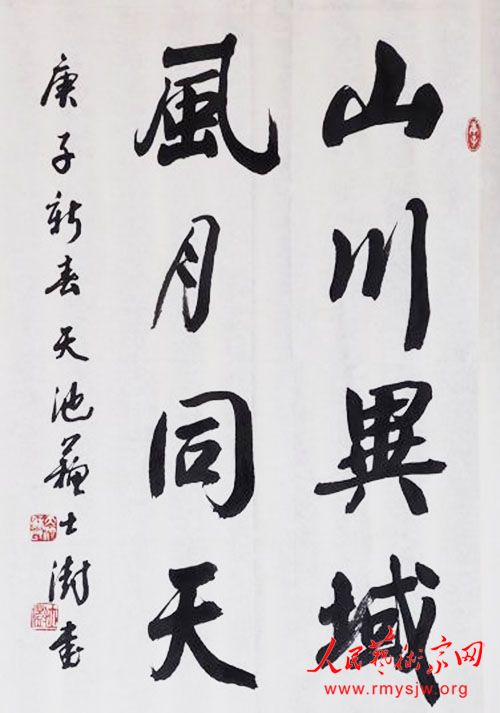 山川異域
風月同天
庚子新春天池蘇士澍書
人民藝術家网
www.rmysjw.org